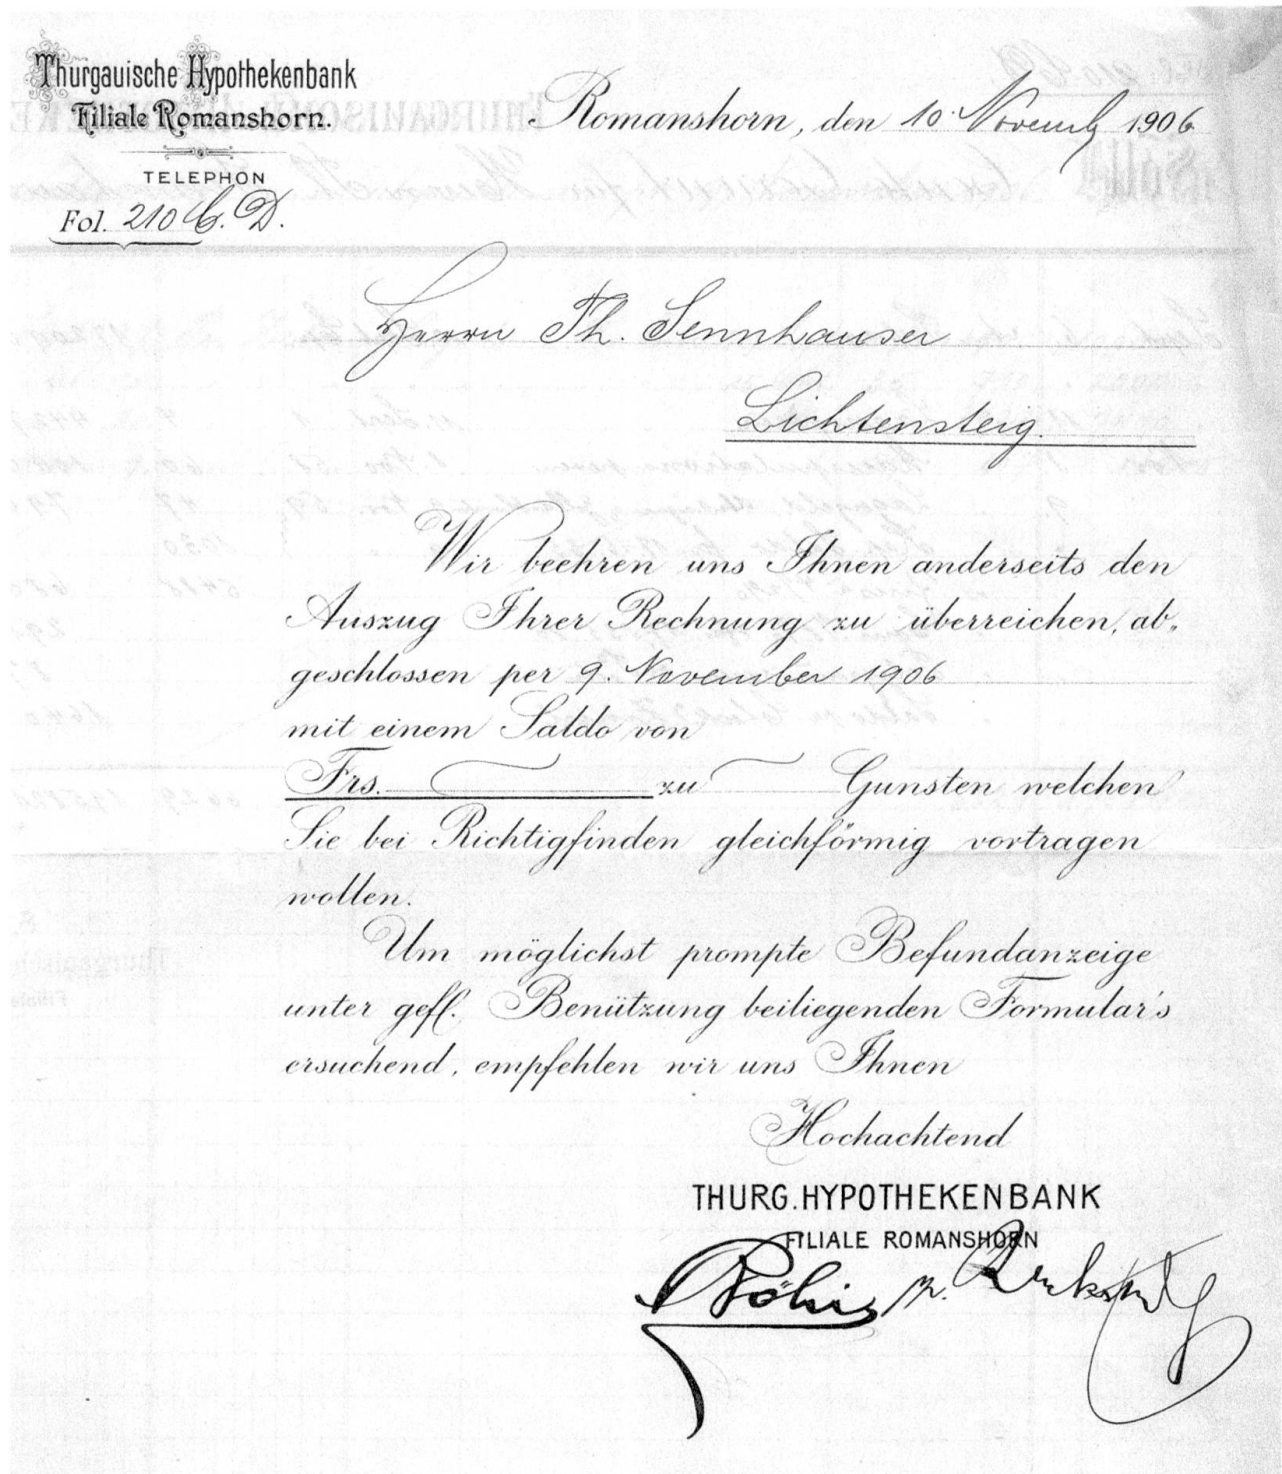 Thurgauische Hypothekenbank
Filiale Romanshorn.
TELEPHON
Fol. 210 C. D.
Romanshorn, den 10. Novemb 1906
Herrn Th. Sennhauser
Lichtensteig.
Wir beehren uns Ihnen anderseits den
Auszug Ihrer Rechnung zu überreichen, ab„
geschlossen per 9. November 1906
mit einem Saldo von
Frs. zu Gunsten welchen
Sie bei Richtigfinden gleichförmig vortragen
wollen.
Um möglichst prompte Befundanzeige
unter gefl. Benützung beiliegenden Formular's
ersuchend, empfehlen wir uns Ihnen
Hochachtend
THURG. HYPOTHEKENBANK
FILIALE ROMANSHORN